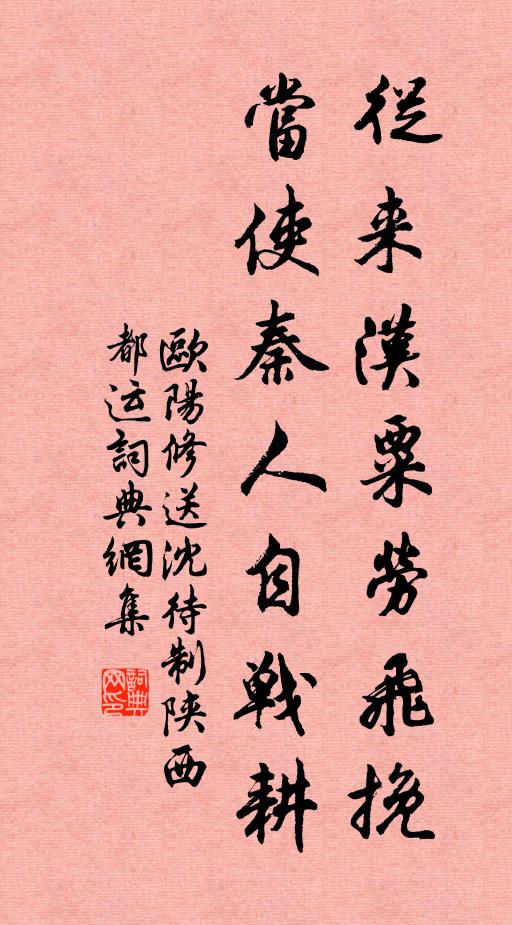 從来漢粟勞飛挽
當使秦人自戦耕
歐陽修送沈待制陝西
都运詞典網集
詞典网印